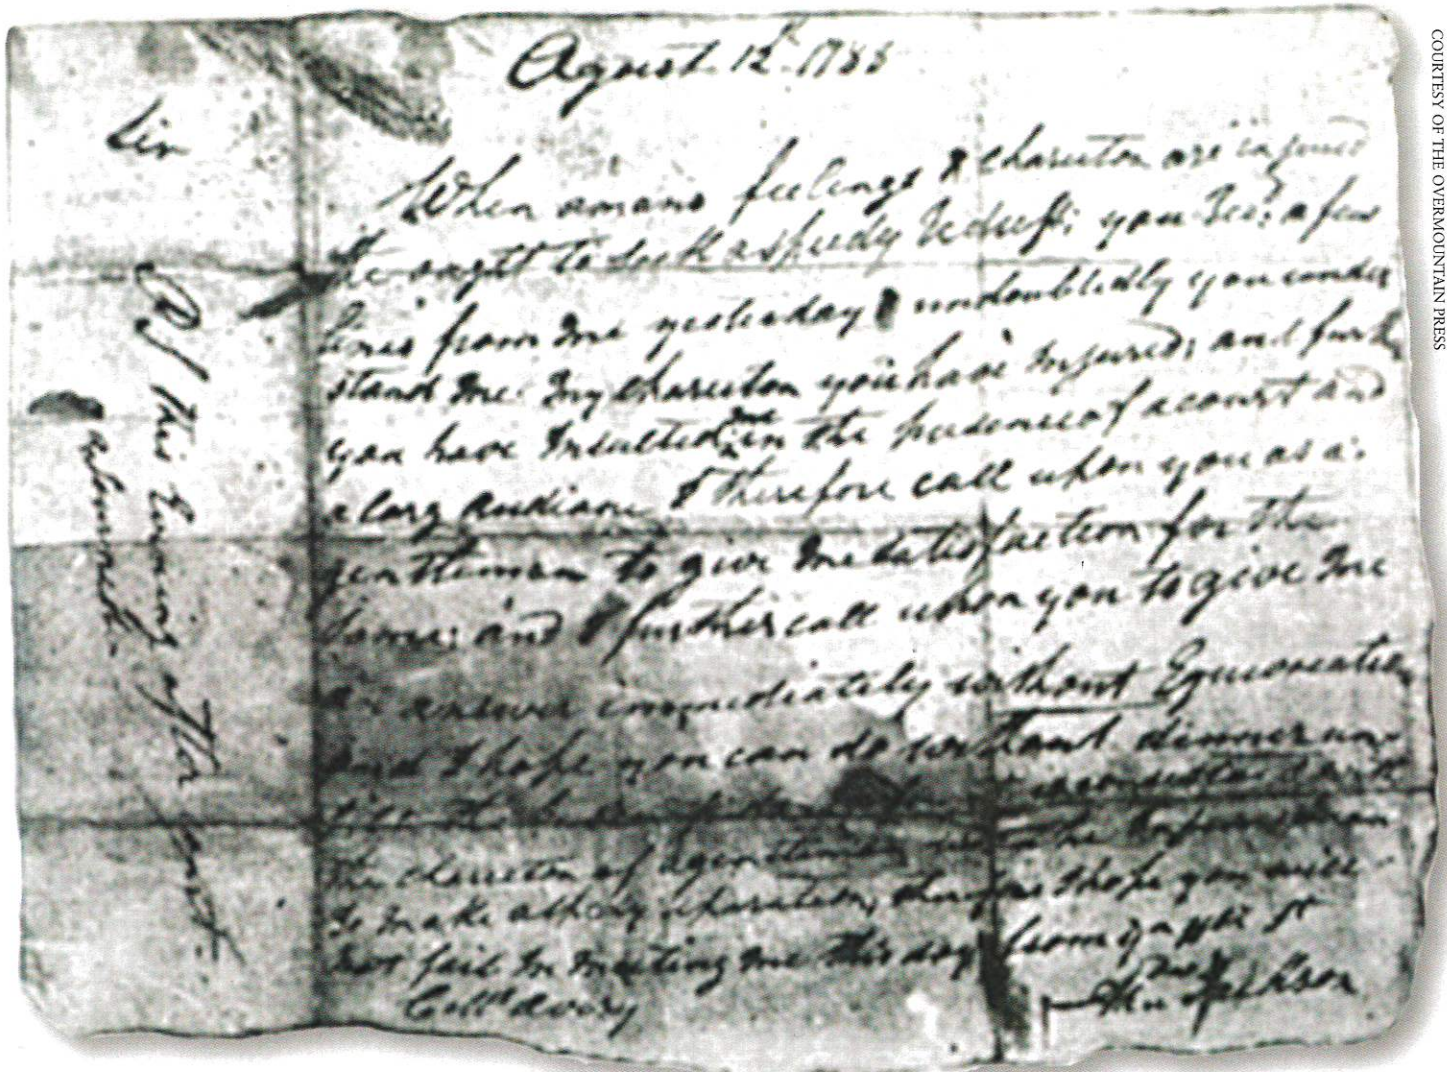 August 12th 1788
Sir
When amans feelings & charector are injured
he ought to seek aspeedy redress; you rec:d a few
lines from me yesterday & undoubtedly you under
stand me. My charector you have injured; and further
you have Insulted me in the presence of a court and
a larg audianc I therefore call upon you as a
gentleman to give me satisfaction for the
Same; and I further call upon you to give me
an answer immediately without Equivocation
and I hope you can do without dinner un-
till the business
the charector of agentleman
to make aspedy reparation, therefore I hope you will
not fail in meeting me this day. from yr Hbl St
Coll. Avery
Andw Jackson
P.S. This Evening after court
adjourned
COURTESY OF THE OVERMOUNTAIN PRESS